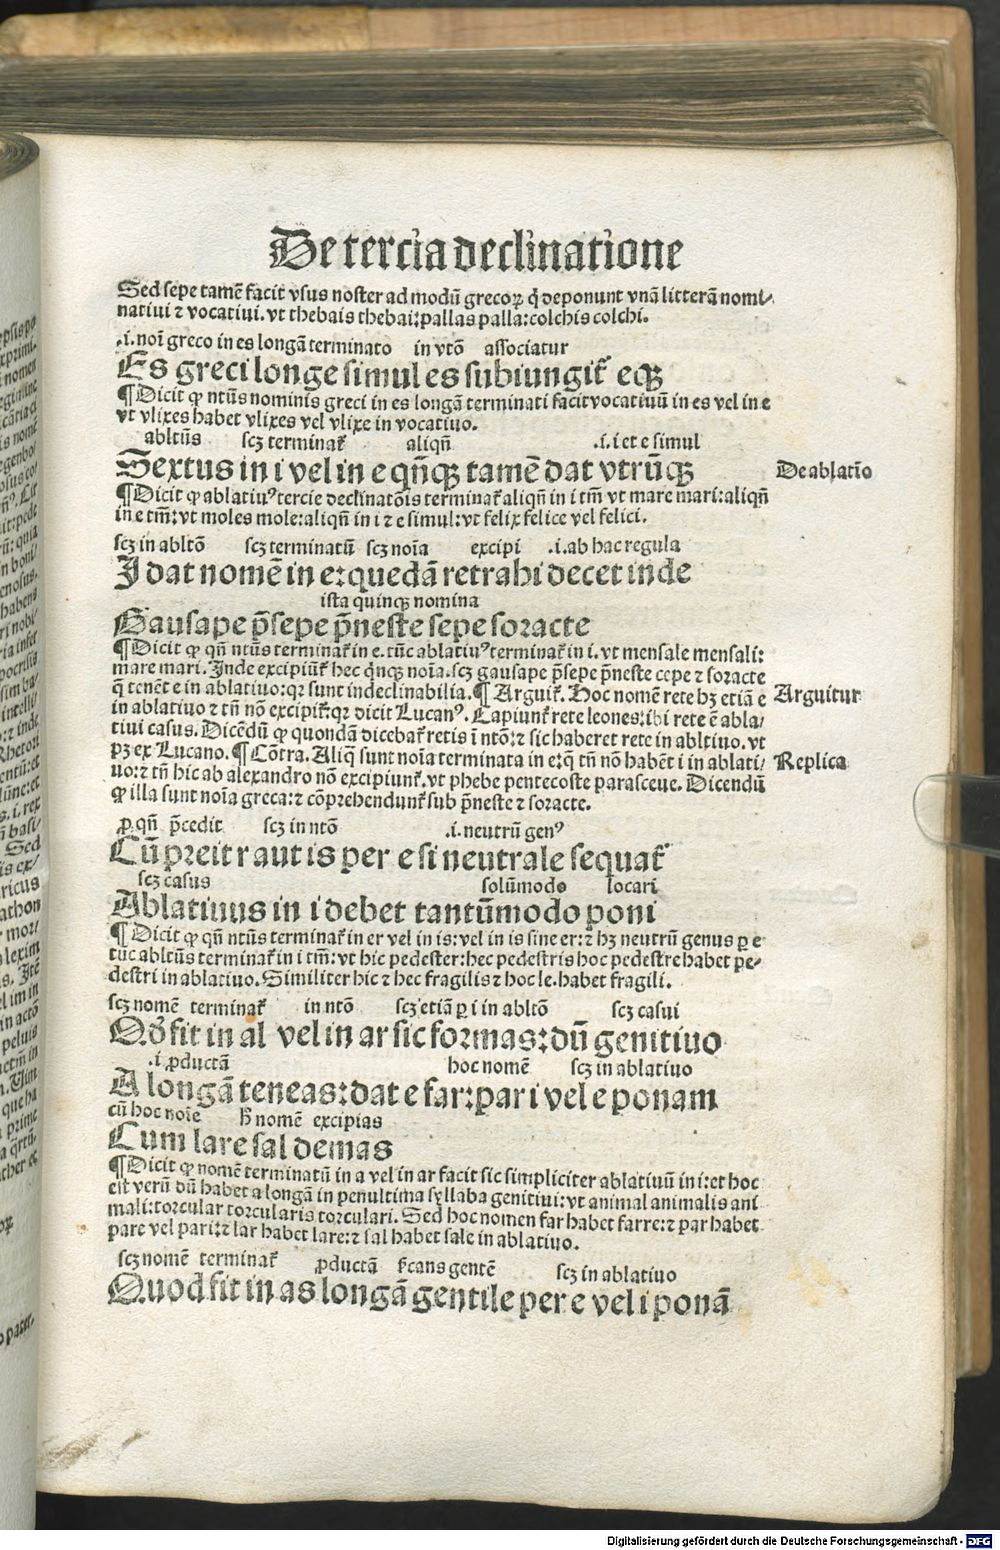 De tercia declinatione
Sed sepe tamē facit vsus noster ad modū grecoꝝ qui deponunt vnā litterā nomi⸗
natiui ⁊ vocatiui. vt thebais thebai: pallas palla: colchis colchi.
.i. noī greco in es longā terminato in vtō associatur
Es greci longe simul es subiungit᷑ eqꝫ
¶ Dicit ꝙ ntūs nominis greci in es longā terminati facit vocatiuū in es vel in e
vt vlixes habet vlixes vel vlixe in vocatiuo.
abltūs scꝫ terminat᷑ aliqn̄ .i. i et e simul
Sextus in i vel in e qn̄qꝫ tamē dat vtrūqꝫ
De ablatiō
¶ Dicit ꝙ ablatiuꝰ tercie declinatōis terminat᷑ aliqn̄ in i tm̄ vt mare mari: aliqn̄
in e tm̄: vt moles mole: aliqn̄ in i ⁊ e simul: vt felix felice vel felici.
scꝫ in abltō scꝫ terminatū scꝫ noīa excipi .i. ab hac regula
I dat nomē in e: quedā retrahi decet inde
ista quinqꝫ nomina
Gausape p̄sepe p̄neste sepe soracte
¶ Dicit ꝙ qn̄ ntūs terminat᷑ in e. tūc ablatiuꝰ terminat᷑ in i. vt mensale mensali:
mare mari. Inde excipiūt᷑ hec qnqꝫ noīa. scꝫ gausape p̄sepe p̄neste cepe ⁊ soracte
q̄ tenēt e in ablatiuo: qꝛ sunt indeclinabilia. ¶ Arguit᷑. Hoc nomē rete hꝫ etiā e
Arguitur
in ablatiuo ⁊ tn̄ nō excipit᷑: qꝛ dicit Lucanꝰ. Capiunt᷑ rete leones: ibi rete ē abla⸗
tiui casus. Dicēdū ꝙ quondā dicebat᷑ retis ī ntō: ⁊ sic haberet rete in abltiuo. vt
pꝫ ex Lucano. ¶ Cōtra. Aliq̄ sunt noīa terminata in e: q̄ tn̄ nō habēt i in ablati⸗
Replica
uo: ⁊ tn̄ hic ab alexandro nō excipiunt᷑. vt phebe pentecoste parasceue. Dicendū
ꝙ illa sunt noīa greca: ⁊ cōprehendunt᷑ sub p̄neste ⁊ soracte.
ꝓ qn̄ p̄cedit scꝫ in ntō .i. neutrū genꝰ
Cū preit r aut is per e si neutrale sequat᷑
scꝫ casus solūmodo locari
Ablatiuus in i debet tantūmodo poni
¶ Dicit ꝙ qn̄ ntūs terminat᷑ in er vel in is: vel in is sine er: ⁊ hꝫ neutrū genus ꝑ e
tūc abltūs terminat᷑ in i tm̄: vt hic pedester: hec pedestris hoc pedestre habet pe⸗
destri in ablatiuo. Similiter hic ⁊ hec fragilis ⁊ hoc le. habet fragili.
scꝫ nomē terminat᷑ in ntō scꝫ etiā ꝑ i in abltō scꝫ casui
Qd̓ fit in al vel in ar sic formas: dū genitiuo
.i. ꝓductā hoc nomē scꝫ in ablatiuo
A longā teneas: dat e far: par i vel e ponam
cū hoc noīe h̄ nomē excipias
Cum lare sal demas
¶ Dicit ꝙ nomē terminatū in a vel in ar facit sic simpliciter ablatiuū in i: et hoc
est verū dū habet a longā in penultima syllaba genitiui: vt animal animalis ani
mali: torcular torcularis torculari. Sed hoc nomen far habet farre: ⁊ par habet
pare vel pari: ⁊ lar habet lare: ⁊ sal habet sale in ablatiuo.
scꝫ nomē terminat᷑ ꝓductā gentē scꝫ in ablatiuo
Quod fit in as longā gentile per e vel i ponā
Digitalisierung gefördert durch die Deutsche Forschungsgemeinschaft - DFG